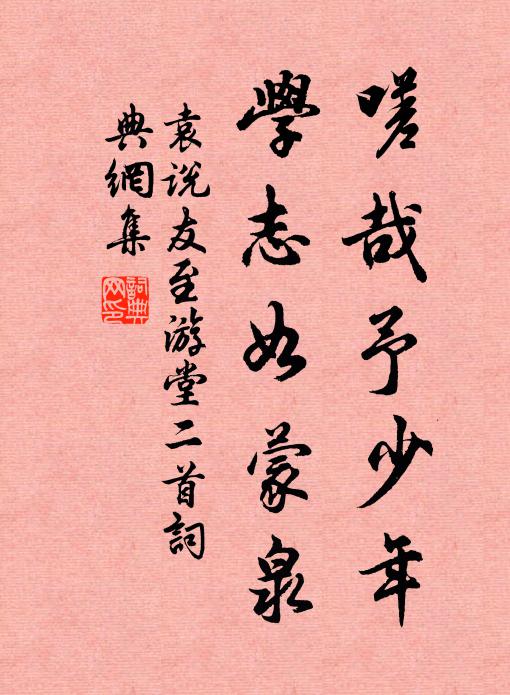 嗟哉予少年
學志如蒙泉
袁说友至游堂二首詞
典網集
詞典網印